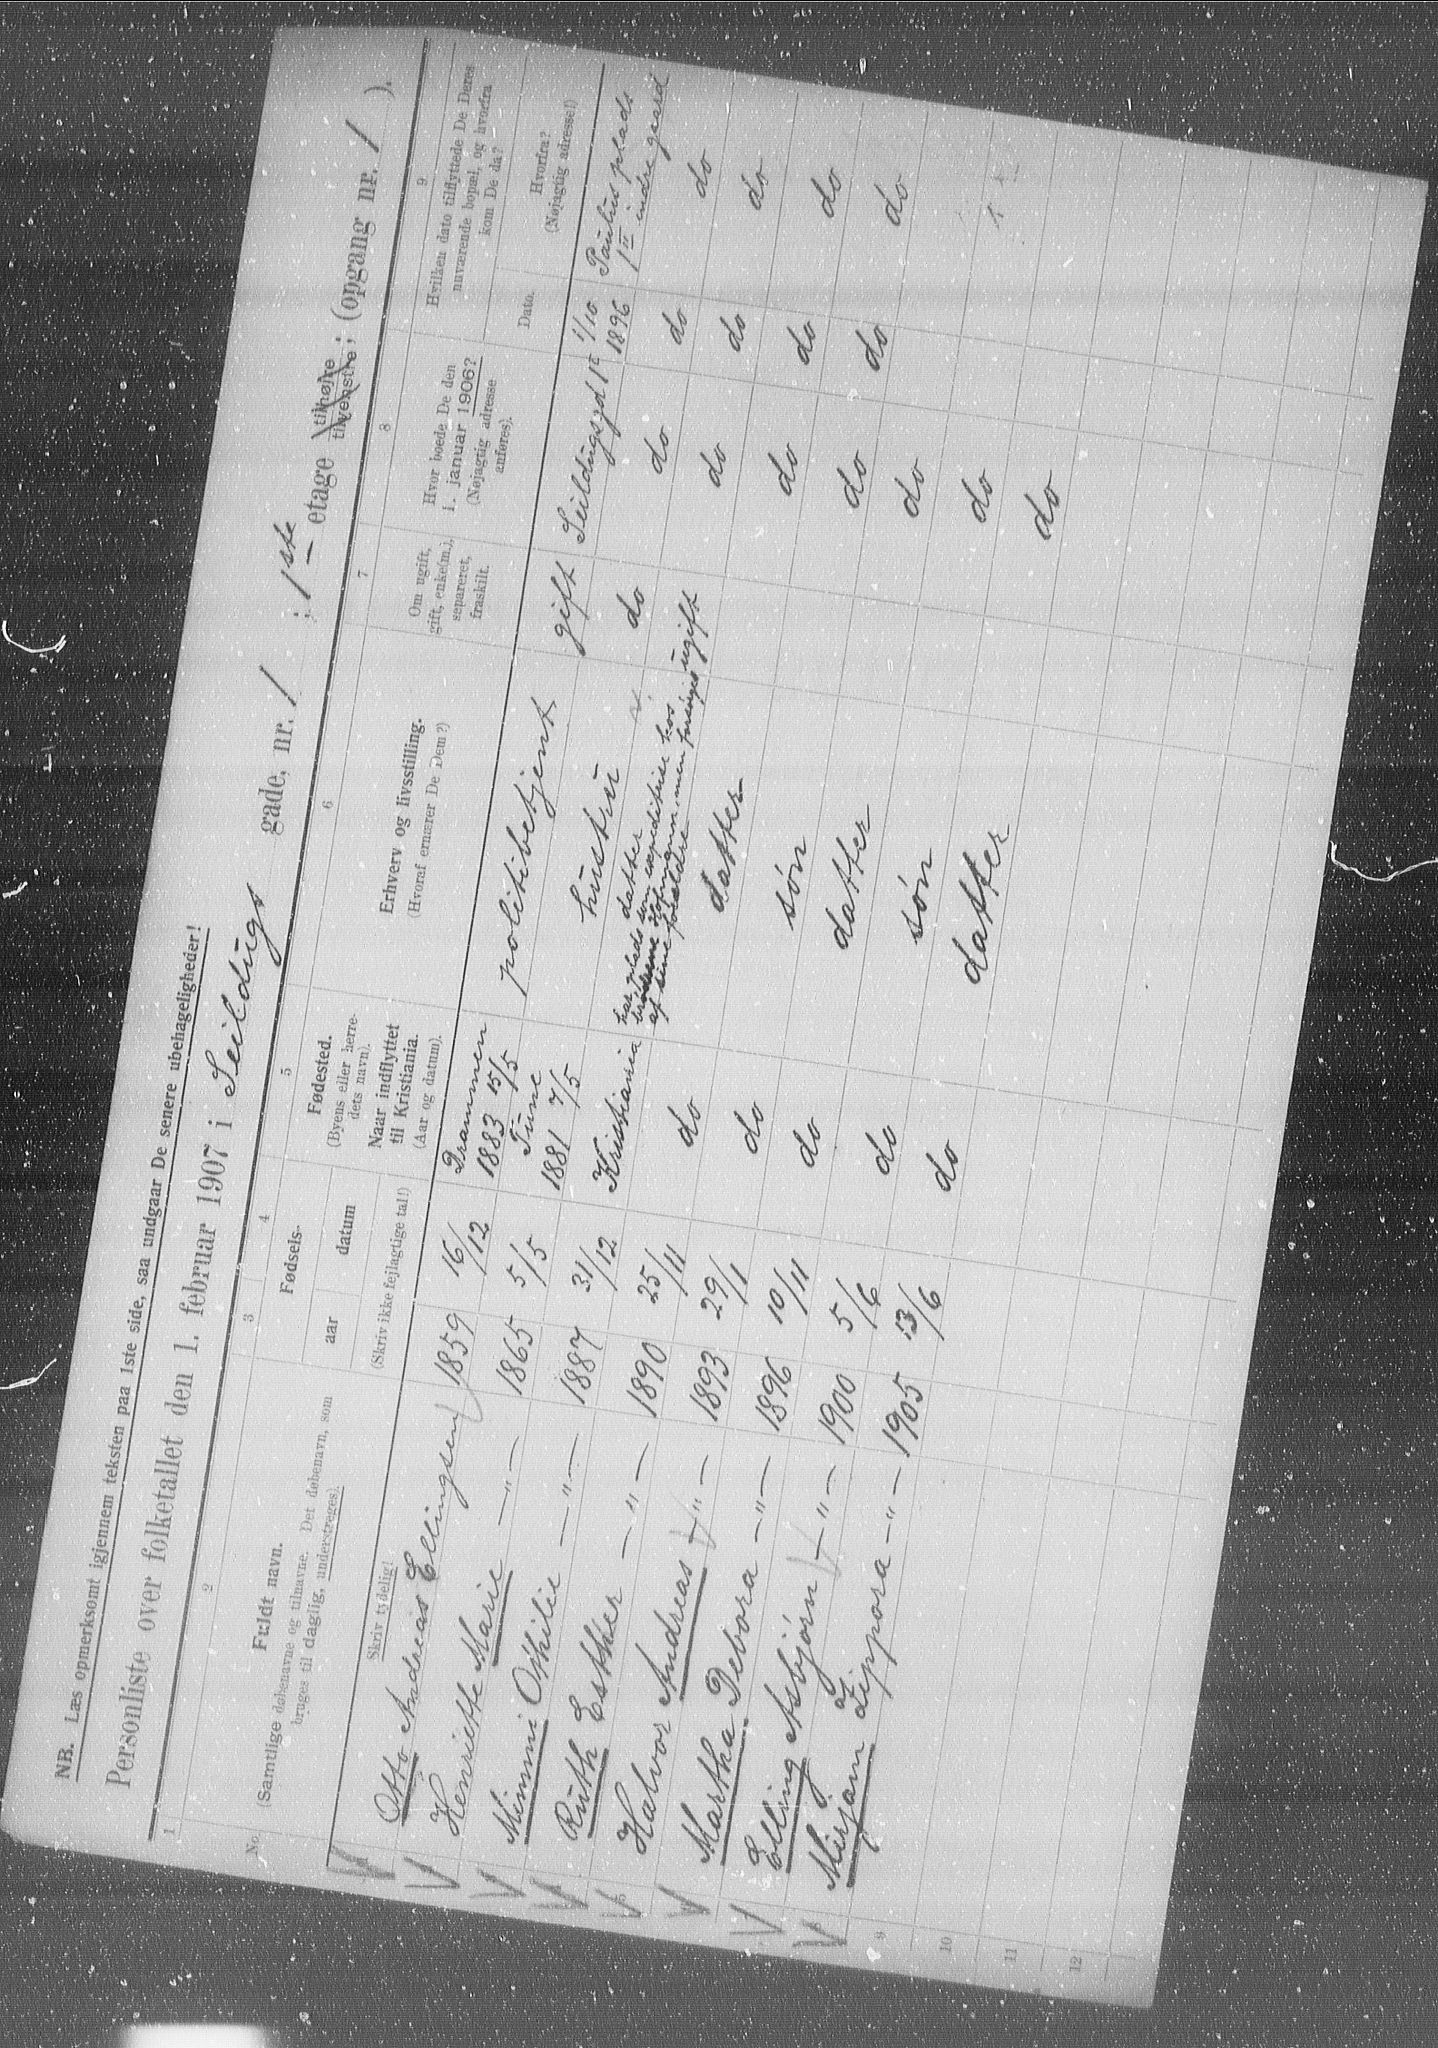 NB. Læs opmerksomt igjennem teksten paa 1ste side, saa undgaar De senere ubehageligheder!
Personliste over folketallet den 1. februar 1907 i Seildugs gade, nr. 1 ; 1ste — etage tilhøjre tilvenstre; (opgang nr. 1 ).
1 2 3 4 5 6 7 8 9
No.
Fuldt navn.
(Samtlige døbenavne og tilnavne. Det døbenavn, som
bruges til daglig, understreges).
Skriv tydelig!
Fødsels-
aar datum
(Skriv ikke fejlagtige tal!)
Fødested.
(Byens eller herre-
dets navn).
Naar indflyttet
til Kristiania.
(Aar og datum).
Erhverv og livsstilling.
(Hvoraf ernærer De Dem?)
Om ugift,
gift, enke(m.),
separeret,
fraskilt.
Hvor boede De den
1. januar 1906?
(Nøjagtig adresse
anføres).
Hvilken dato tilflyttede De Deres
nuværende bopæl, og hvorfra
kom De da?
Dato.
Hvorfra?
(Nøjagtig adresse!)
Otto Andreas Ellingsen 1859 16/12 Drammen 1883 15/5 politibetjent gift Seildugsgd 1 1/10 1896 Paulus plads 1 indre gaard
Henriette Marie —"— 1865 5/5 Tune 1881 7/5 hustru do do do do
Mimmi Othilie —"— 1887 31/12 Kristiania datter
har plads som expeditrise hos
brødrene men forsørges
af sine forældre ugift do do do
Ruth Esther —"— 1890 25/11 do datter do do do
Halvor Andreas —"— 1893 29/1 do søn do do do
Martha Debora —"— 1896 10/11 do datter do
Elling Asbjørn —"— 1900 5/6 do søn do
Mirjam Zippora —"— 1905 13/6 do datter do
5
9
10
11
12